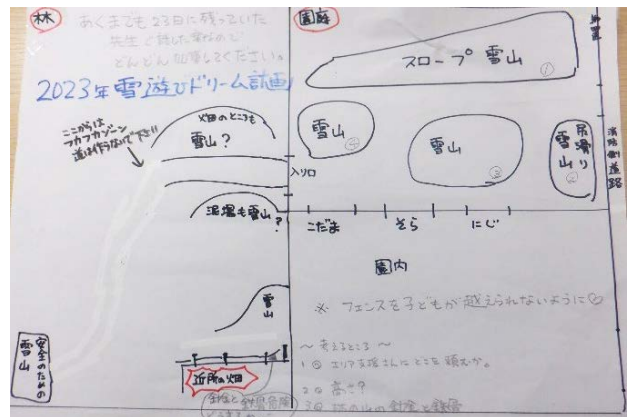 林
あくまでも23日に残っていた
先生で話した案なので
どんどん加筆してください。
2023年雪遊びドリーム計画
ここからは
フカフカゾーン
道は作らないで下さい!!
畑のところも
雪山?
泥場も雪山?
雪山
安全のための
雪山
近所の畑
園庭
スロープ雪山
①
雪山
雪山
③
尻滑り
雪山
消防側道路
入り口
こだま
そら
にじ
園内
※ フェンスを子どもが越えられないように♡
〜考えるところ〜
1 エリア支援さんにどこを頼むか。
2 高さ?